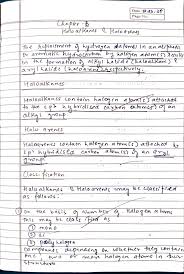 Date:
Page No.
Chapter - 6
Haloalkanes & Haloarenes
The replacement of hydrogen atoms in an aliphatic
or aromatic hydrocarbon by halogen atom(s) results
in the formation of alkyl halide (haloalkane) &
aryl halide (haloarene) respectively.
Haloalkanes
Haloalkanes contain halogen atom(s) attached
to the sp³ hybridised carbon atom(s) of an
alkyl group
Halo arenes
Haloarenes contain halogen atom(s) attached to
sp² hybridised carbon atom(s) of an aryl
group
Classification
Haloalkanes & Haloarenes may be classified
as follows.
On the basis of number of halogen atoms
this may be classified as
mono
di
polyhalogen
compounds depending on whether they contain
one, two or more halogen atoms in